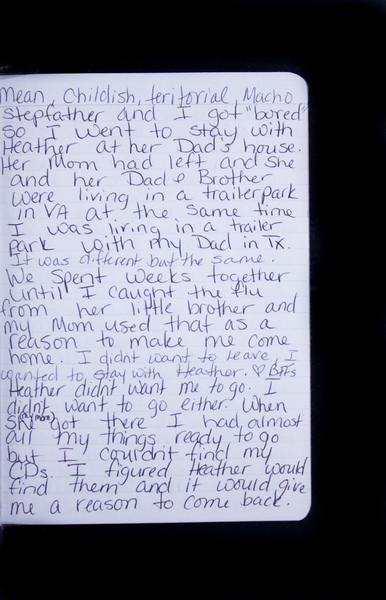 Mean, Childish, teritorial, Macho
Stepfather and I got "bored"
so I went to stay with
Heather at her Dad's house.
Her Mom had left and she
and her Dad & Brother
were living in a trailerpark
in VA at the same time
I was living in a trailer
park with my Dad in TX.
It was different but the same.
We spent weeks together
until I caught the flu
from her little brother and
my Mom used that as a
reason to make me come
home. I didnt want to leave, I
wanted to stay with Heather. ♡ BFFs
Heather didnt want me to go. I
didnt want to go either. When
she (my mom) got there I had almost
all my things ready to go
but I couldn't find my
CDs. I figured Heather would
find them and it would give
me a reason to come back.